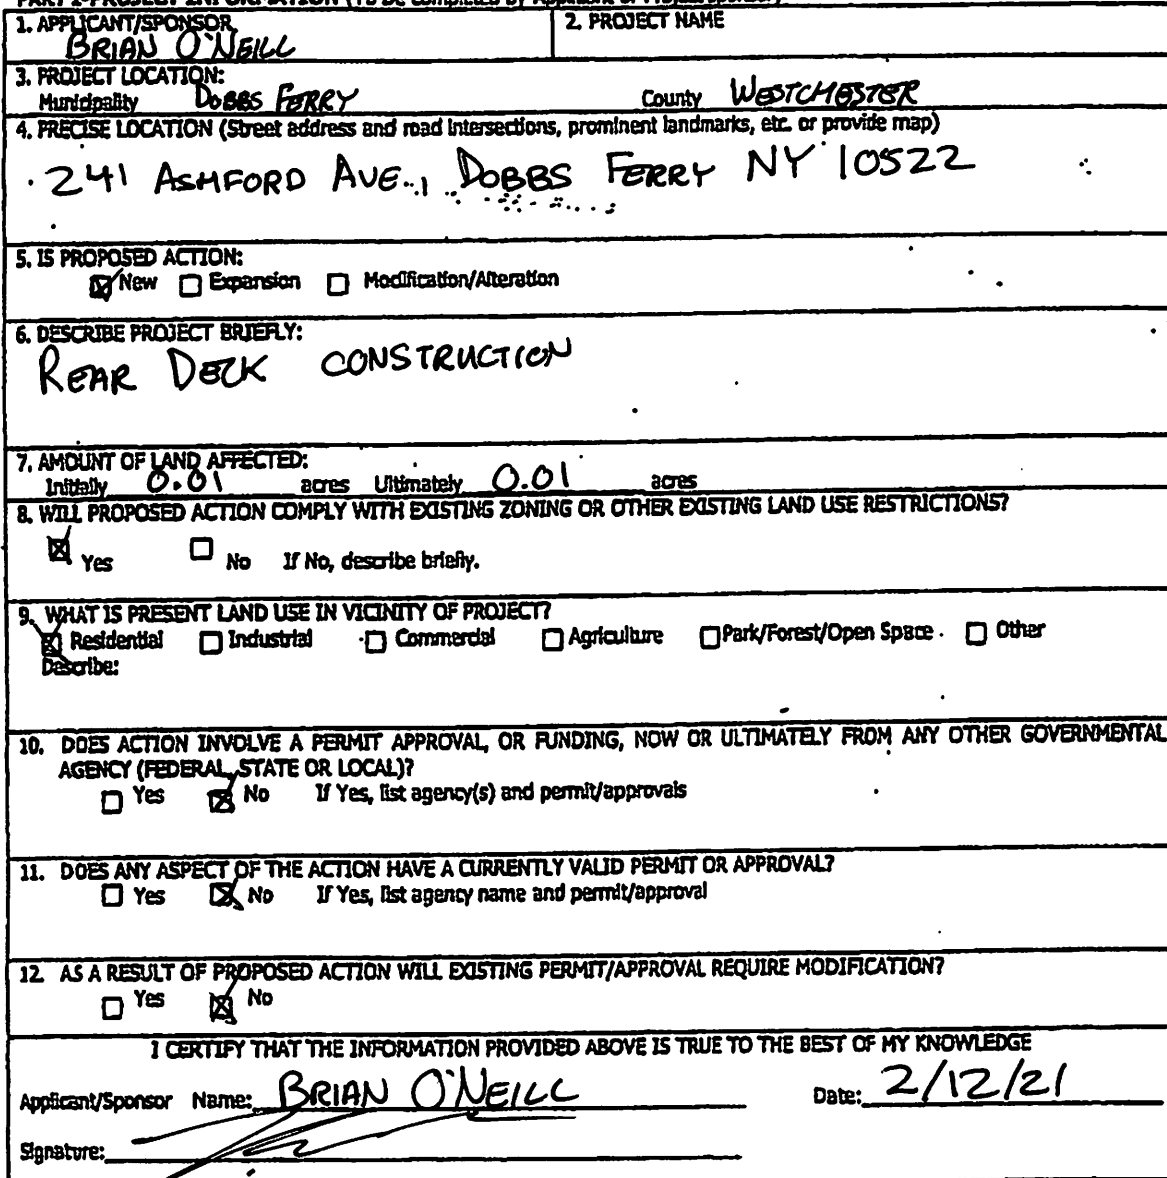 PART 1-PROJECT INFORMATION (To be completed by Applicant or Project Sponsor)
1. APPLICANT/SPONSOR 2. PROJECT NAME
BRIAN O'NEILL
3. PROJECT LOCATION:
Municipality DOBBS FERRY County WESTCHESTER
4. PRECISE LOCATION (Street address and road intersections, prominent landmarks, etc. or provide map)
241 ASHFORD AVE., DOBBS FERRY NY 10522
5. IS PROPOSED ACTION:
New Expansion Modification/Alteration
6. DESCRIBE PROJECT BRIEFLY:
REAR DECK CONSTRUCTION
7. AMOUNT OF LAND AFFECTED:
Initially 0.01 acres Ultimately 0.01 acres
8. WILL PROPOSED ACTION COMPLY WITH EXISTING ZONING OR OTHER EXISTING LAND USE RESTRICTIONS?
Yes No If No, describe briefly.
9. WHAT IS PRESENT LAND USE IN VICINITY OF PROJECT?
Residential Industrial Commercial Agriculture Park/Forest/Open Space Other
Describe:
10. DOES ACTION INVOLVE A PERMIT APPROVAL, OR FUNDING, NOW OR ULTIMATELY FROM ANY OTHER GOVERNMENTAL
AGENCY (FEDERAL, STATE OR LOCAL)?
Yes No If Yes, list agency(s) and permit/approvals
11. DOES ANY ASPECT OF THE ACTION HAVE A CURRENTLY VALID PERMIT OR APPROVAL?
Yes No If Yes, list agency name and permit/approval
12. AS A RESULT OF PROPOSED ACTION WILL EXISTING PERMIT/APPROVAL REQUIRE MODIFICATION?
Yes No
I CERTIFY THAT THE INFORMATION PROVIDED ABOVE IS TRUE TO THE BEST OF MY KNOWLEDGE
Applicant/Sponsor Name: BRIAN O'NEILL Date: 2/12/21
Signature: